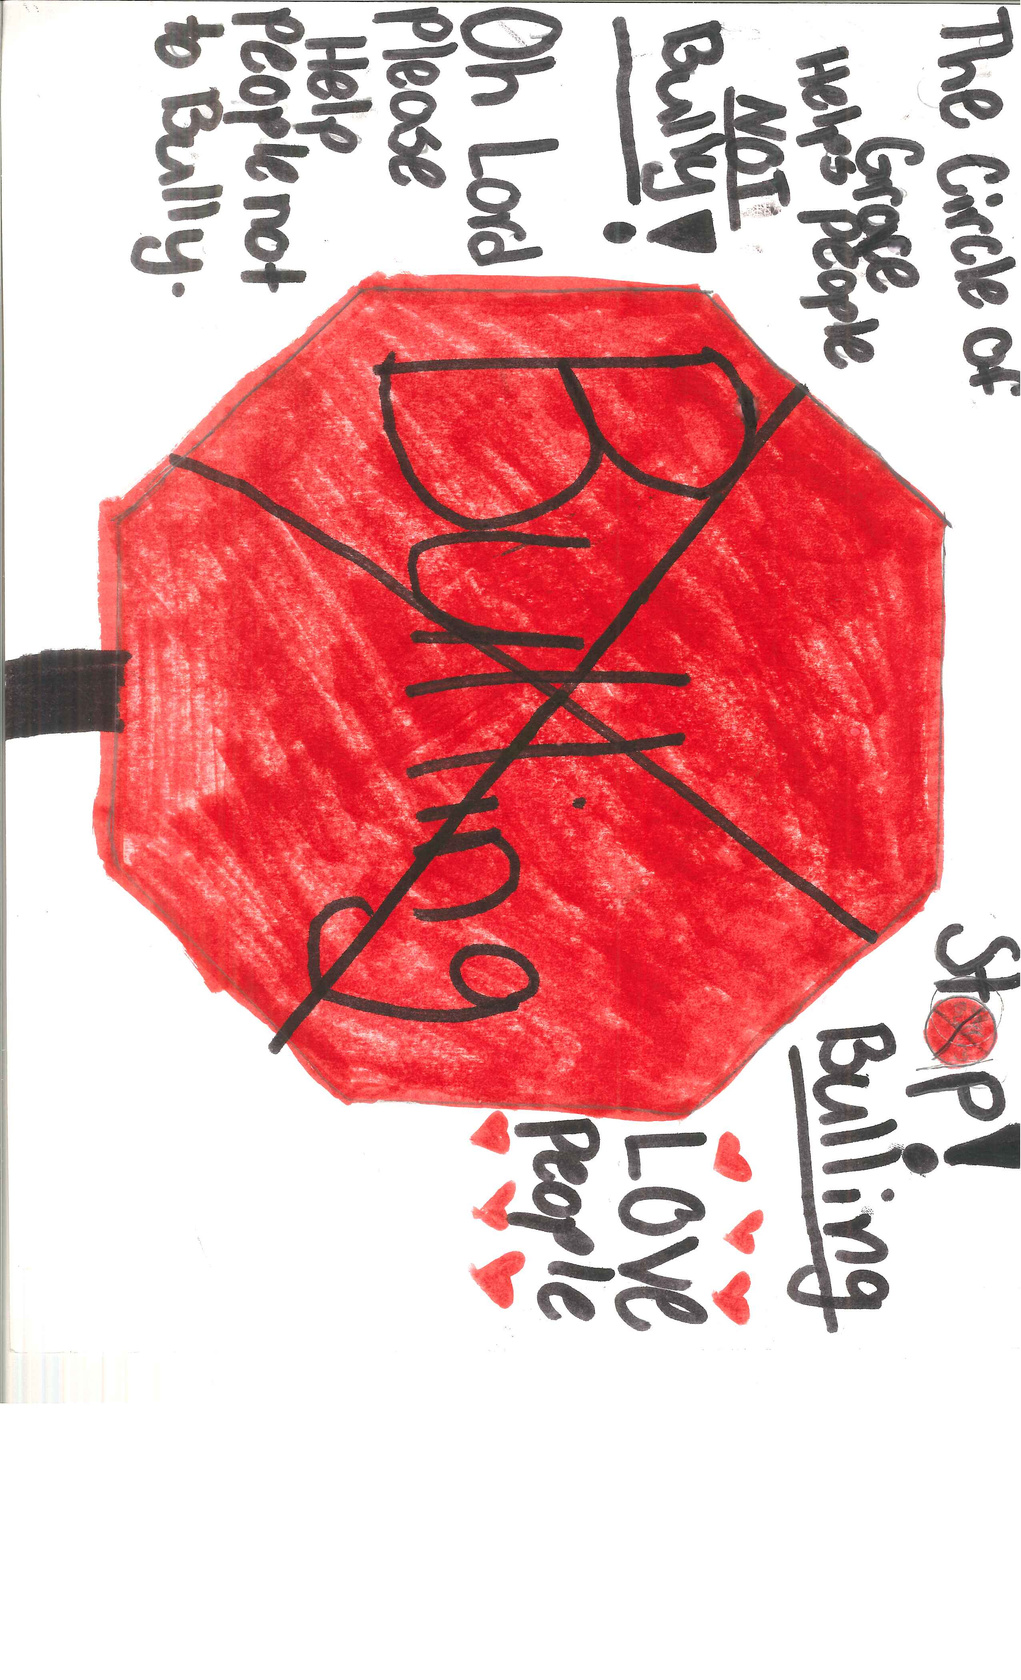 The Circle of
Grace
Helps people
NOT
Bully!
Oh Lord
please
Help
people not
to Bully.
Bulling
StOP!
Bulling
LOVe
people